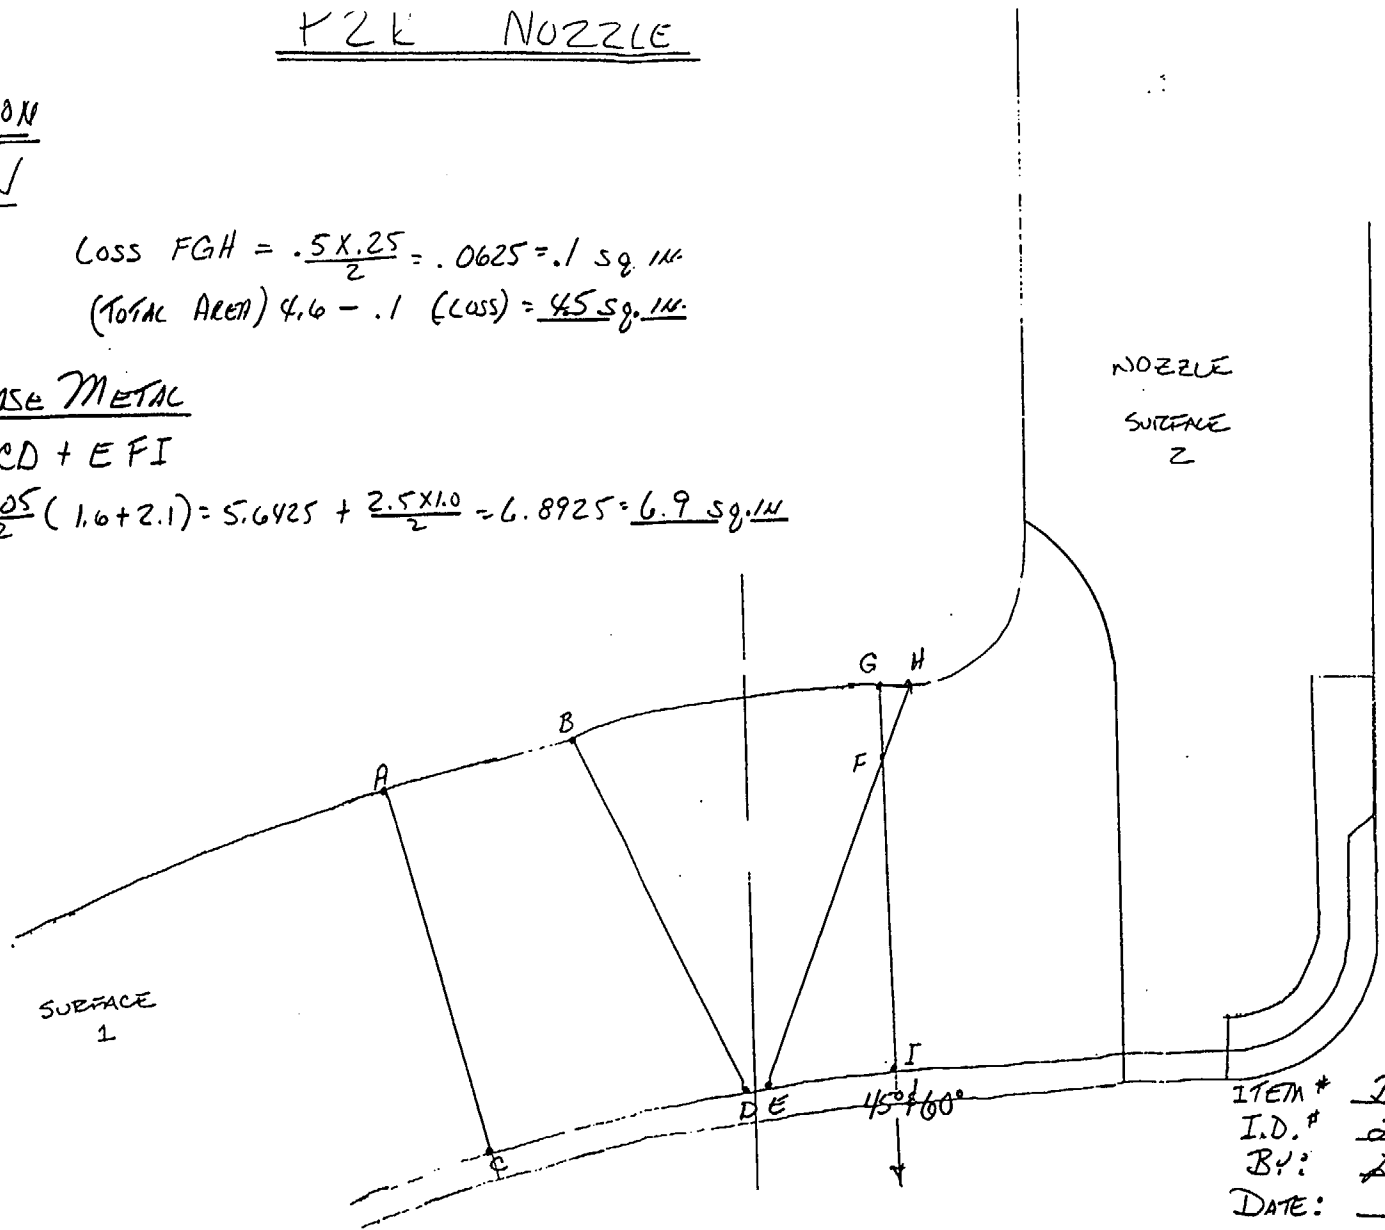 NOZZLE
ON
Loss FGH = .5 X .25 / 2 = .0625 = .1 sq. IN.
(TOTAL AREA) 4.6 - .1 (LOSS) = 4.5 sq. IN.
METAL
CD + EFI
(1.6 + 2.1) = 5.6425 + 2.5 X 1.0 / 2 = 6.8925 = 6.9 sq. IN
NOZZLE
SURFACE
2
G H
B
F
A
SURFACE
1
I
D E
45° & 60°
C
ITEM #
I.D. #
BY:
DATE: